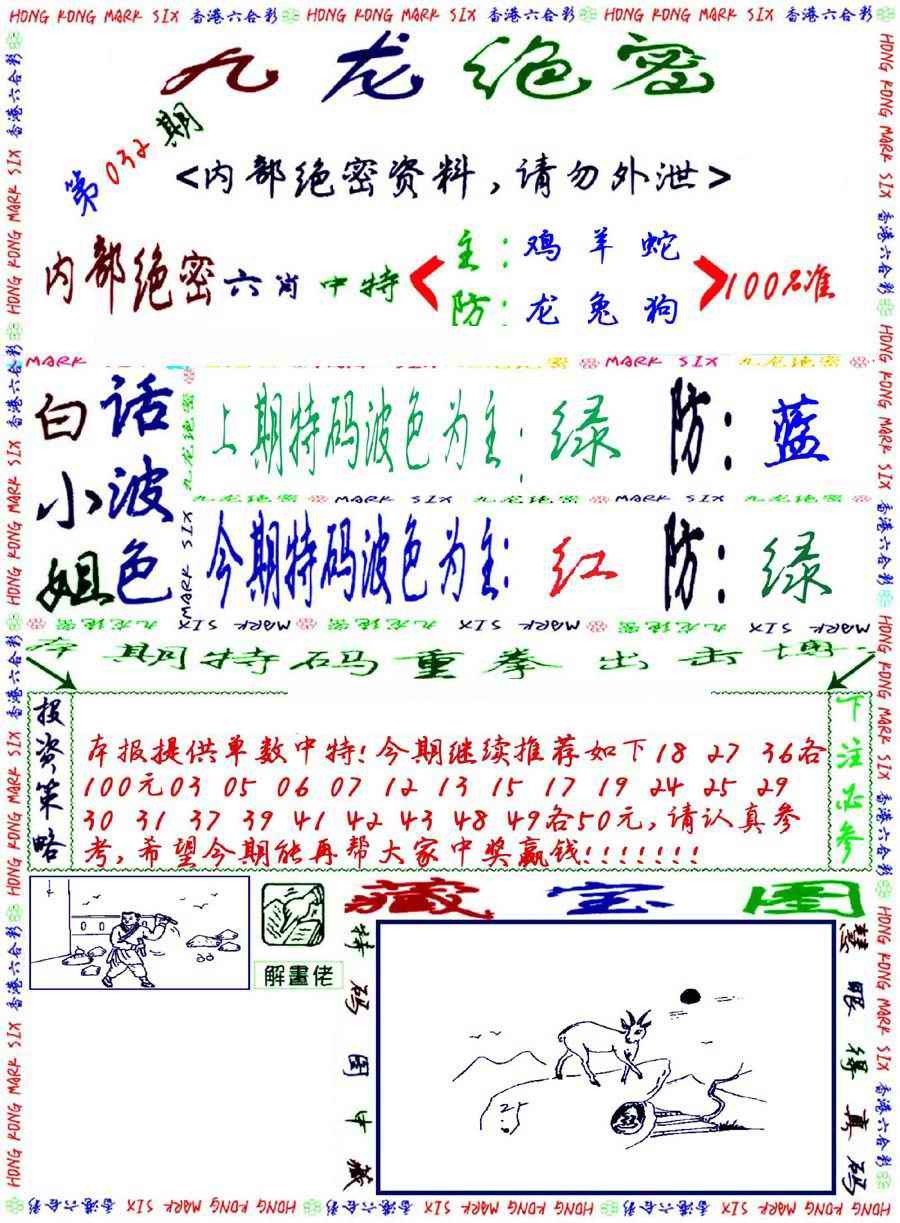 HONG KONG MARK SIX 香港六合彩 HONG KONG MARK SIX 香港六合彩 HONG KONG MARK SIX 香港六合彩
九龙绝密
第032期
<内部绝密资料,请勿外泄>
内部绝密六肖中特
主:鸡羊蛇
防:龙兔狗
100%准
MARK SIX 九龙绝密 MARK SIX 九龙绝密
白话小波姐色
上期特码波色为主:绿 防:蓝
九龙绝密 MARK SIX 九龙绝密 MARK SIX 九龙绝密
今期特码波色为主:红 防:绿
MARK SIX 九龙绝密 MARK SIX 九龙绝密 MARK SIX
本期特码重拳出击博
投资策略
本报提供单数中特!今期继续推荐如下18 27 36各
100元03 05 06 07 12 13 15 17 19 24 25 29
30 31 37 39 41 42 43 48 49各50元,请认真参
考,希望今期能再帮大家中奖赢钱!!!!!!!
下注必参
解畫佬
藏宝图
特码图中藏
慧眼得真码
HONG KONG MARK SIX 香港六合彩 HONG KONG MARK SIX 香港六合彩